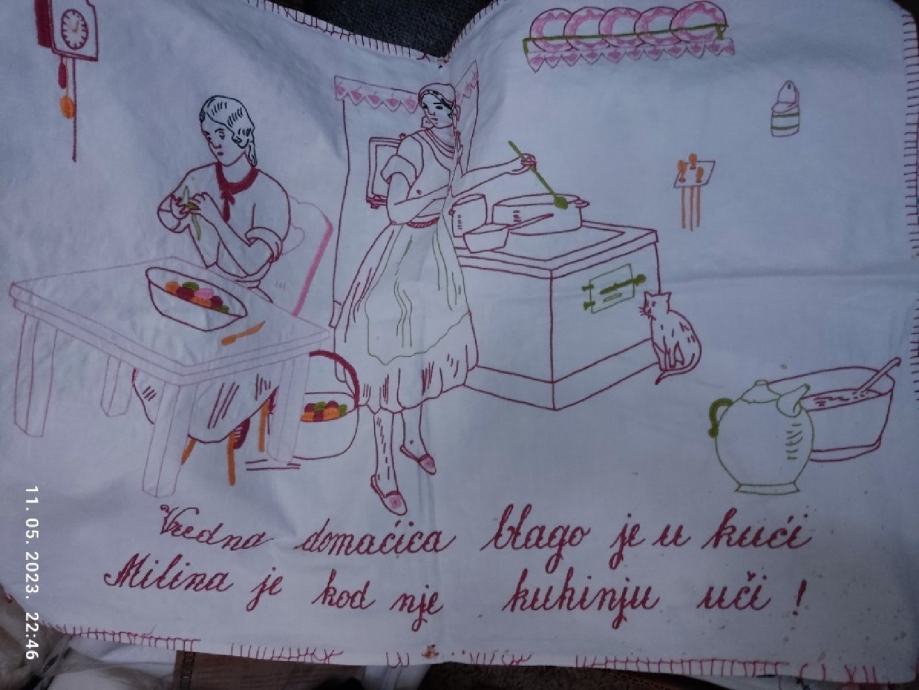 Vredna domaćica blago je u kući
Milina je kod nje kuhinju uči !
11. 05. 2023. 22:46